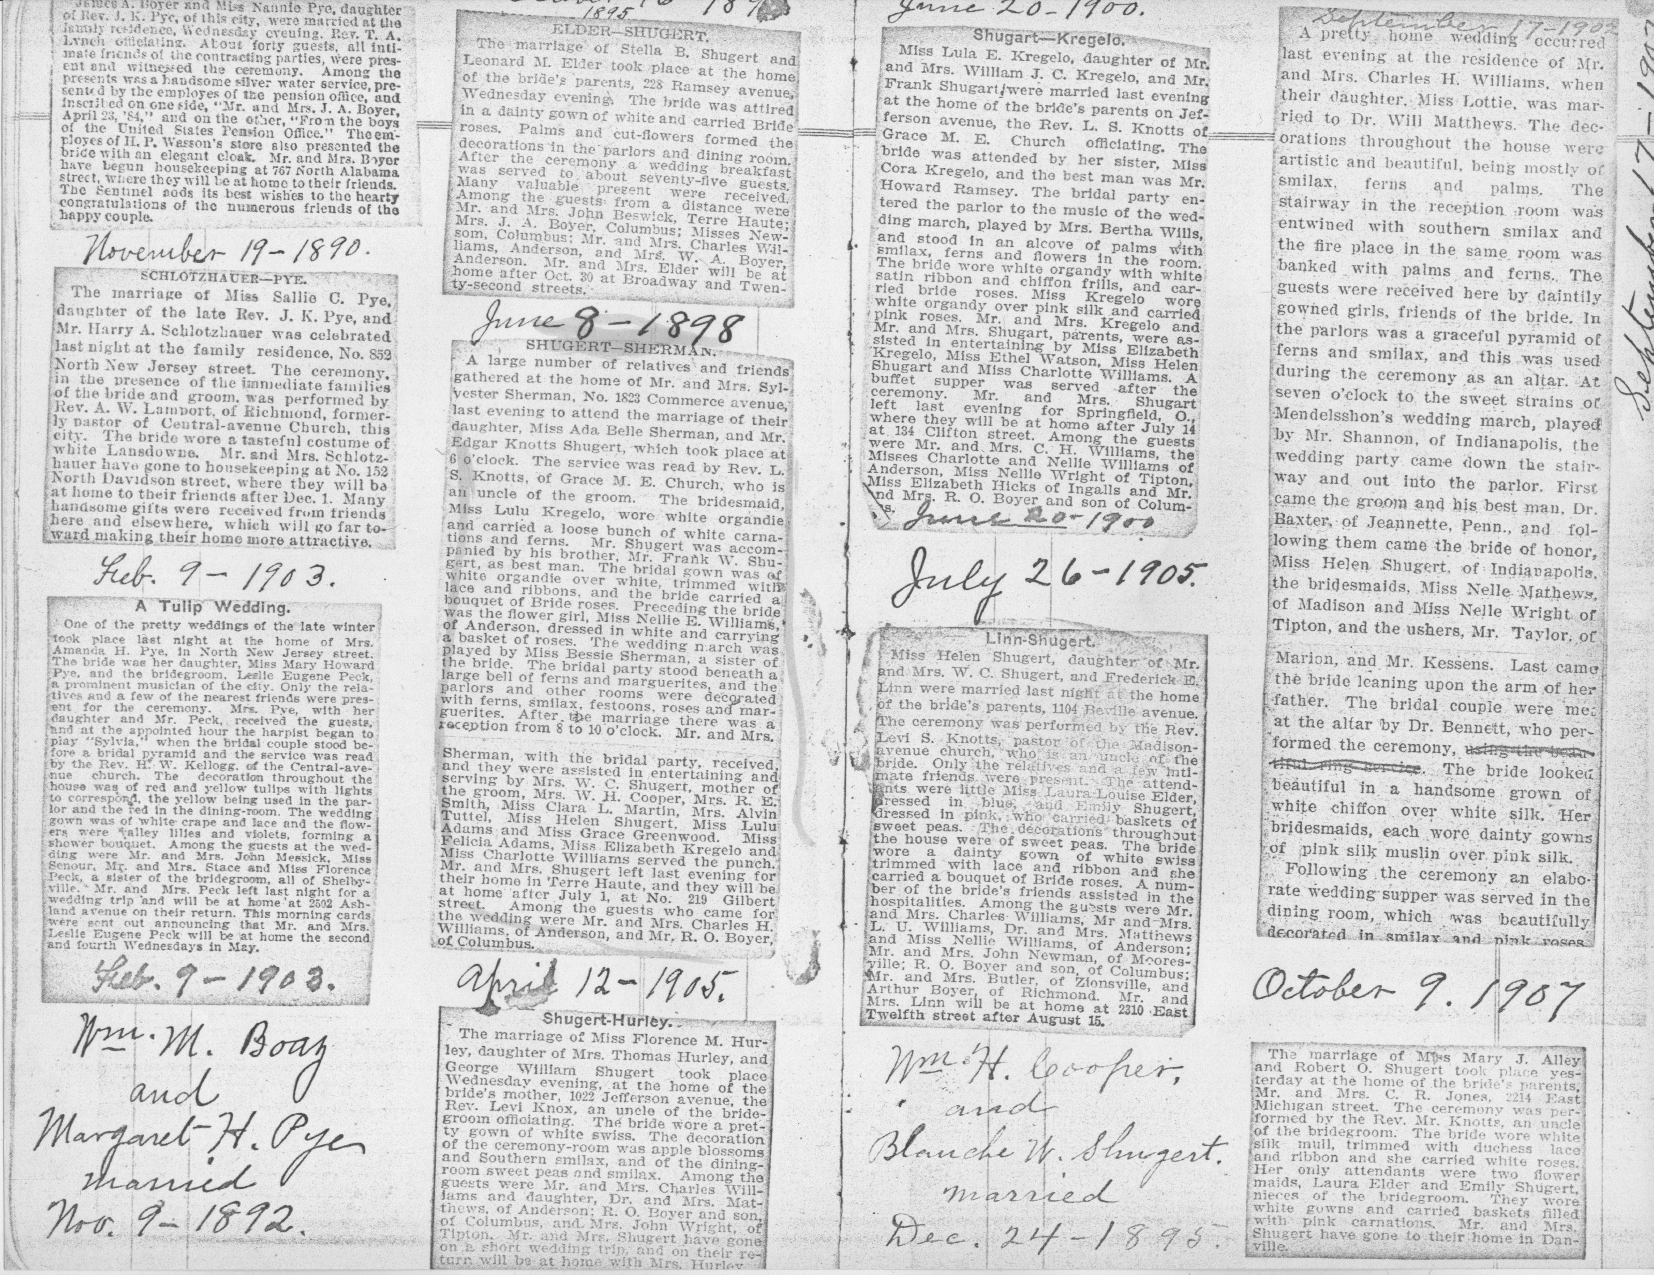 James A. Boyer and Miss Nannie Pye, daughter
of Rev. J. K. Pye, of this city, were married at the
family residence, Wednesday evening. Rev. T. A.
Lynch officiating. About forty guests, all inti-
mate friends of the contracting parties, were pres-
ent and witnessed the ceremony. Among the
presents was a handsome silver water service, pre-
sented by the employes of the pension office, and
inscribed on one side, "Mr. and Mrs. J. A. Boyer,
April 23, '84," and on the other, "From the boys
of the United States Pension Office." The em-
ployes of H. P. Wasson's store also presented the
bride with an elegant cloak. Mr. and Mrs. Boyer
have begun housekeeping at 767 North Alabama
street, where they will be at home to their friends.
The Sentinel adds its best wishes to the hearty
congratulations of the numerous friends of the
happy couple.
November 19-1890.
SCHLOTZHAUER—PYE.
The marriage of Miss Sallie C. Pye,
daughter of the late Rev. J. K. Pye, and
Mr. Harry A. Schlotzhauer was celebrated
last night at the family residence, No. 852
North New Jersey street. The ceremony,
in the presence of the immediate families
of the bride and groom, was performed by
Rev. A. W. Lamport, of Richmond, former-
ly pastor of Central-avenue Church, this
city. The bride wore a tasteful costume of
white Lansdowne. Mr. and Mrs. Schlotz-
hauer have gone to housekeeping at No. 152
North Davidson street, where they will be
at home to their friends after Dec. 1. Many
handsome gifts were received from friends
here and elsewhere, which will go far to-
ward making their home more attractive.
Feb. 9-1903.
A Tulip Wedding.
One of the pretty weddings of the late winter
took place last night at the home of Mrs.
Amanda H. Pye, in North New Jersey street.
The bride was her daughter, Miss Mary Howard
Pye, and the bridegroom, Leslie Eugene Peck,
a prominent musician of the city. Only the rela-
tives and a few of the nearest friends were pres-
ent for the ceremony. Mrs. Pye, with her
daughter and Mr. Peck, received the guests,
and at the appointed hour the harpist began to
play "Sylvia," when the bridal couple stood be-
fore a bridal pyramid and the service was read
by the Rev. H. W. Kellogg, of the Central-ave-
nue church. The decoration throughout the
house was of red and yellow tulips with lights
to correspond, the yellow being used in the par-
lor and the red in the dining-room. The wedding
gown was of white crape and lace and the flow-
ers were valley lilies and violets, forming a
shower bouquet. Among the guests at the wed-
ding were Mr. and Mrs. John Messick, Miss
Senour, Mr. and Mrs. Stace and Miss Florence
Peck, a sister of the bridegroom, all of Shelby-
ville. Mr. and Mrs. Peck left last night for a
wedding trip and will be at home at 2502 Ash-
land avenue on their return. This morning cards
were sent out announcing that Mr. and Mrs.
Leslie Eugene Peck will be at home the second
and fourth Wednesdays in May.
Feb. 9-1903.
Wm. M. Boaz
and
Margaret H. Pye
married
Nov. 9-1892.
1895
ELDER—SHUGERT.
The marriage of Stella B. Shugert and
Leonard M. Elder took place at the home
of the bride's parents, 228 Ramsey avenue,
Wednesday evening. The bride was attired
in a dainty gown of white and carried Bride
roses. Palms and cut-flowers formed the
decorations in the parlors and dining room.
After the ceremony a wedding breakfast
was served to about seventy-five guests.
Many valuable present were received.
Among the guests from a distance were
Mr. and Mrs. John Beswick, Terre Haute;
Mrs. J. A. Boyer, Columbus; Misses New-
som, Columbus; Mr. and Mrs. Charles Wil-
liams, Anderson, and Mrs. W. A. Boyer,
Anderson. Mr. and Mrs. Elder will be at
home after Oct. 30 at Broadway and Twen-
ty-second streets.
June 8-1898
SHUGERT—SHERMAN.
A large number of relatives and friends
gathered at the home of Mr. and Mrs. Syl-
vester Sherman, No. 1823 Commerce avenue,
last evening to attend the marriage of their
daughter, Miss Ada Belle Sherman, and Mr.
Edgar Knotts Shugert, which took place at
6 o'clock. The service was read by Rev. L.
S. Knotts, of Grace M. E. Church, who is
an uncle of the groom. The bridesmaid,
Miss Lulu Kregelo, wore white organdie
and carried a loose bunch of white carna-
tions and ferns. Mr. Shugert was accom-
panied by his brother, Mr. Frank W. Shu-
gert, as best man. The bridal gown was of
white organdie over white, trimmed with
lace and ribbons, and the bride carried a
bouquet of Bride roses. Preceding the bride
was the flower girl, Miss Nellie E. Williams,
of Anderson, dressed in white and carrying
a basket of roses. The wedding march was
played by Miss Bessie Sherman, a sister of
the bride. The bridal party stood beneath a
large bell of ferns and marguerites, and the
parlors and other rooms were decorated
with ferns, smilax, festoons, roses and mar-
guerites. After the marriage there was a
reception from 8 to 10 o'clock. Mr. and Mrs.
Sherman, with the bridal party, received,
and they were assisted in entertaining and
serving by Mrs. W. C. Shugert, mother of
the groom, Mrs. W. H. Cooper, Mrs. R. E.
Smith, Miss Clara L. Martin, Mrs. Alvin
Tuttel, Miss Helen Shugert, Miss Lulu
Adams and Miss Grace Greenwood. Miss
Felicia Adams, Miss Elizabeth Kregelo and
Miss Charlotte Williams served the punch.
Mr. and Mrs. Shugert left last evening for
their home in Terre Haute, and they will be
at home after July 1, at No. 219 Gilbert
street. Among the guests who came for
the wedding were Mr. and Mrs. Charles H.
Williams, of Anderson, and Mr. R. O. Boyer,
of Columbus.
April 12-1905.
Shugert-Hurley.
The marriage of Miss Florence M. Hur-
ley, daughter of Mrs. Thomas Hurley, and
George William Shugert took place
Wednesday evening, at the home of the
bride's mother, 1022 Jefferson avenue, the
Rev. Levi Knox, an uncle of the bride-
groom officiating. The bride wore a pret-
ty gown of white swiss. The decoration
of the ceremony-room was apple blossoms
and Southern smilax, and of the dining-
room sweet peas and smilax. Among the
guests were Mr. and Mrs. Charles Will-
iams and daughter, Dr. and Mrs. Mat-
thews, of Anderson; R. O. Boyer and son,
of Columbus, and Mrs. John Wright, of
Tipton. Mr. and Mrs. Shugert have gone
on a short wedding trip, and on their re-
turn will be at home with Mrs. Hurley
June 20-1900.
Shugart—Kregelo.
Miss Lula E. Kregelo, daughter of Mr.
and Mrs. William J. C. Kregelo, and Mr.
Frank Shugart, were married last evening
at the home of the bride's parents on Jef-
ferson avenue, the Rev. L. S. Knotts of
Grace M. E. Church officiating. The
bride was attended by her sister, Miss
Cora Kregelo, and the best man was Mr.
Howard Ramsey. The bridal party en-
tered the parlor to the music of the wed-
ding march, played by Mrs. Bertha Wills,
and stood in an alcove of palms with
smilax, ferns and flowers in the room.
The bride wore white organdy with white
satin ribbon and chiffon frills, and car-
ried bride roses. Miss Kregelo wore
white organdy over pink silk and carried
pink roses. Mr. and Mrs. Kregelo and
Mr. and Mrs. Shugart, parents, were as-
sisted in entertaining by Miss Elizabeth
Kregelo, Miss Ethel Watson, Miss Helen
Shugart and Miss Charlotte Williams. A
buffet supper was served after the
ceremony. Mr. and Mrs. Shugart
left last evening for Springfield, O.,
where they will be at home after July 14
at 134 Clifton street. Among the guests
were Mr. and Mrs. C. H. Williams, the
Misses Charlotte and Nellie Williams of
Anderson, Miss Nellie Wright of Tipton,
Miss Elizabeth Hicks of Ingalls and Mr.
nd Mrs. R. O. Boyer and son of Colum-
s.
June 20-1900
July 26-1905.
Linn-Shugert.
Miss Helen Shugert, daughter of Mr.
and Mrs. W. C. Shugert, and Frederick E.
Linn were married last night at the home
of the bride's parents, 1104 Beville avenue.
The ceremony was performed by the Rev.
Levi S. Knotts, pastor of the Madison-
avenue church, who is an uncle of the
bride. Only the relatives and a few inti-
mate friends were present. The attend-
ants were little Miss Laura Louise Elder,
dressed in blue, and Emily Shugert,
dressed in pink, who carried baskets of
sweet peas. The decorations throughout
the house were of sweet peas. The bride
wore a dainty gown of white swiss
trimmed with lace and ribbon and she
carried a bouquet of Bride roses. A num-
ber of the bride's friends assisted in the
hospitalities. Among the guests were Mr.
and Mrs. Charles Williams, Mr and Mrs.
L. U. Williams, Dr. and Mrs. Matthews
and Miss Nellie Williams, of Anderson;
Mr. and Mrs. John Newman, of Moores-
ville; R. O. Boyer and son, of Columbus;
Mr. and Mrs. Butler, of Zionsville, and
Arthur Boyer, of Richmond. Mr. and
Mrs. Linn will be at home at 2310 East
Twelfth street after August 15.
Wm. H. Cooper,
and
Blanche W. Shugert.
married
Dec. 24-1895.
September 17-1902
A pretty home wedding occurred
last evening at the residence of Mr.
and Mrs. Charles H. Williams, when
their daughter, Miss Lottie, was mar-
ried to Dr. Will Matthews. The dec-
orations throughout the house were
artistic and beautiful, being mostly of
smilax, ferns and palms. The
stairway in the reception room was
entwined with southern smilax and
the fire place in the same room was
banked with palms and ferns. The
guests were received here by daintily
gowned girls, friends of the bride. In
the parlors was a graceful pyramid of
ferns and smilax, and this was used
during the ceremony as an altar. At
seven o'clock to the sweet strains of
Mendelsshon's wedding march, played
by Mr. Shannon, of Indianapolis, the
wedding party came down the stair-
way and out into the parlor. First
came the groom and his best man, Dr.
Baxter, of Jeannette, Penn., and fol-
lowing them came the bride of honor,
Miss Helen Shugert, of Indianapolis,
the bridesmaids, Miss Nelle Mathews,
of Madison and Miss Nelle Wright of
Tipton, and the ushers, Mr. Taylor, of
Marion, and Mr. Kessens. Last came
the bride leaning upon the arm of her
father. The bridal couple were met
at the altar by Dr. Bennett, who per-
formed the ceremony, using the beau-
tiful ring service. The bride looked
beautiful in a handsome grown of
white chiffon over white silk. Her
bridesmaids, each wore dainty gowns
of pink silk muslin over pink silk.
Following the ceremony an elabo-
rate wedding supper was served in the
dining room, which was beautifully
decorated in smilax and pink roses
September 17-1902
October 9. 1907
The marriage of Miss Mary J. Alley
and Robert O. Shugert took place yes-
terday at the home of the bride's parents,
Mr. and Mrs. C. R. Jones, 2214 East
Michigan street. The ceremony was per-
formed by the Rev. Mr. Knotts, an uncle
of the bridegroom. The bride wore white
silk mull, trimmed with duchess lace
and ribbon and she carried white roses.
Her only attendants were two flower
maids, Laura Elder and Emily Shugert,
nieces of the bridegroom. They wore
white gowns and carried baskets filled
with pink carnations. Mr. and Mrs.
Shugert have gone to their home in Dan-
ville.